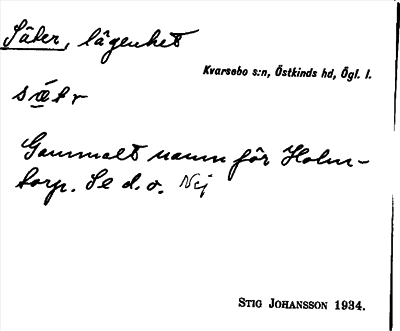 Säter, lägenhet
Kvarsebo s:n, Östkinds hd, Ögl. l.
sǽtr
Gammalt namn för Holm-
torp. Se d. o. Nej
STIG JOHANSSON 1934.